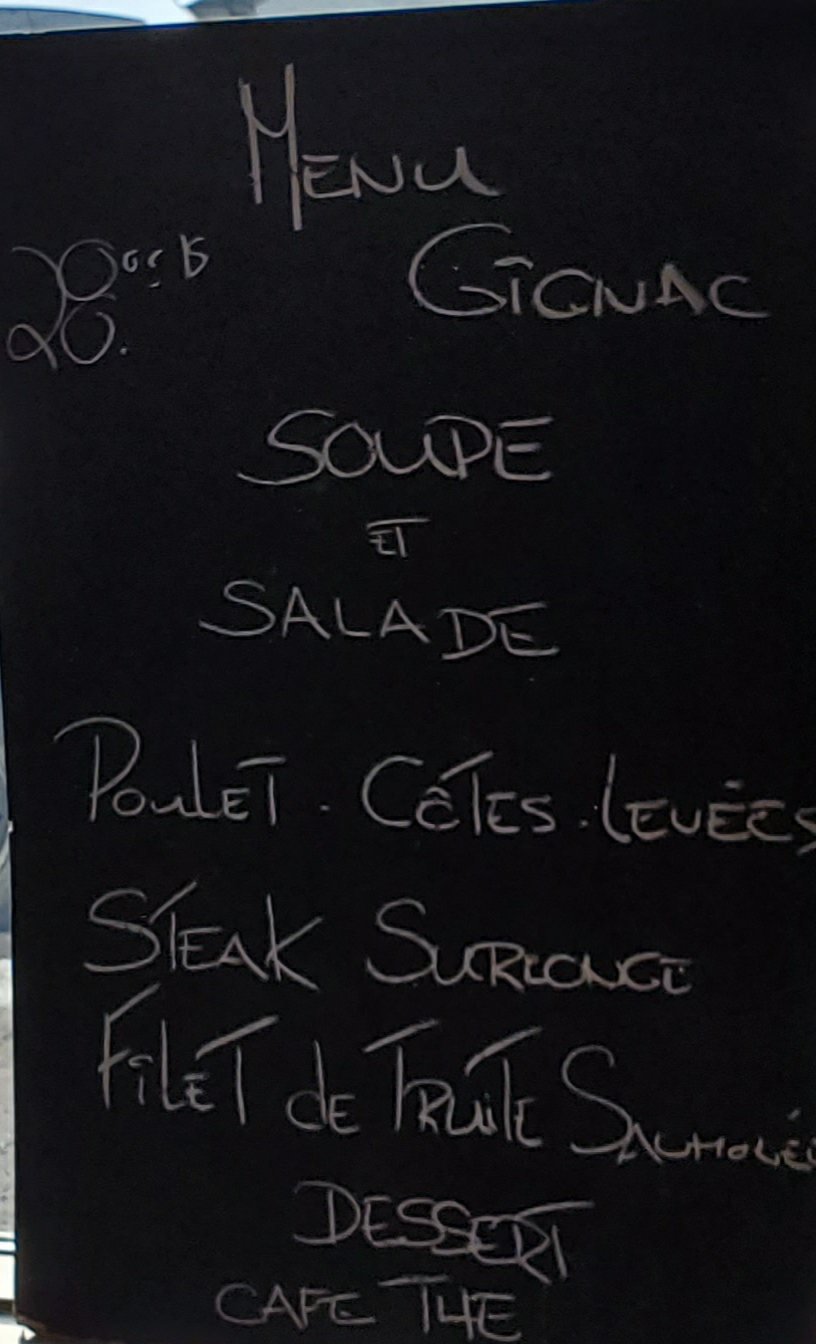 MENU
GIGNAC
SOUPE
ET
SALADE
POULET . CÔTES . LEVÉES
STEAK SURLONGE
FILET de TRUITE SAUMONÉE
DESSERT
CAFE THE